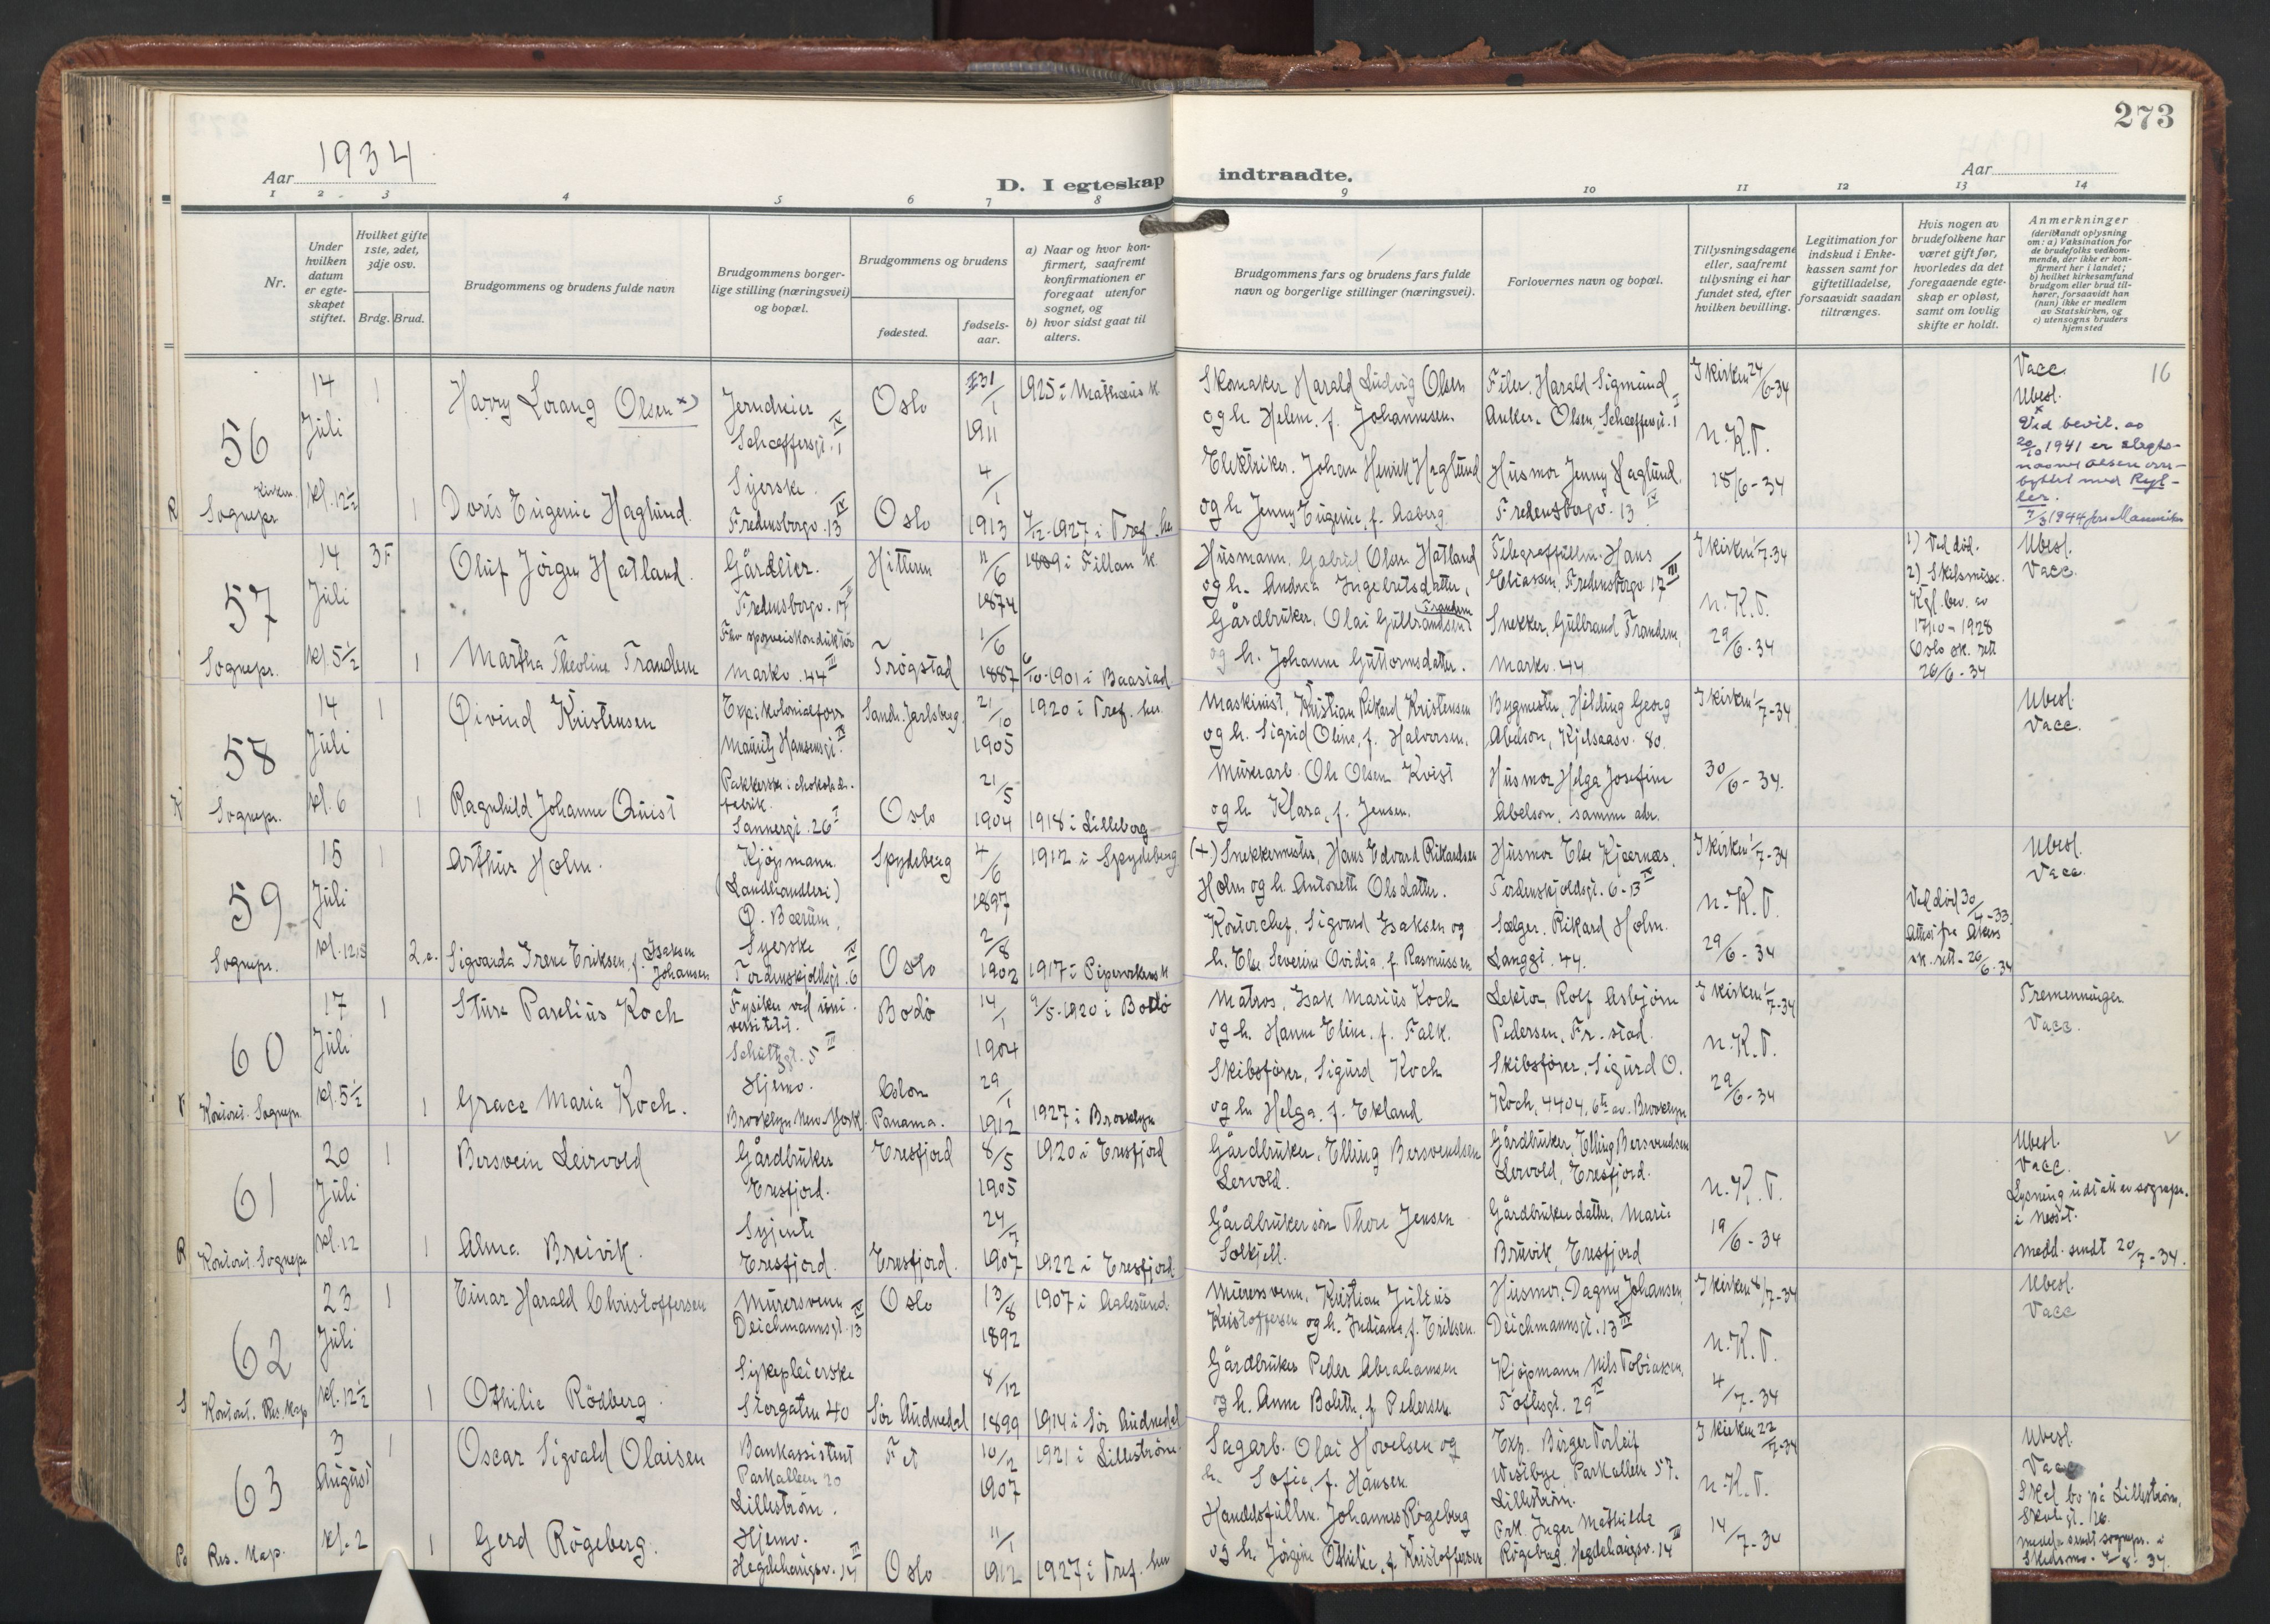 273
Aar 1934
D. I egteskap indtraadte.
Aar
1 2 3 4 5 6 7 8 9 10 11 12 13 14
Nr.
Under hvilken datum er egteskapet stiftet.
Hvilket gifte 1ste, 2det, 3dje osv.
Brdg. Brud.
Brudgommens og brudens fulde navn
Brudgommens borgerlige stilling (næringsvei) og bopæl.
Brudgommens og brudens
fødested.
fødselsaar.
a) Naar og hvor konfirmert, saafremt konfirmationen er foregaat utenfor sognet, og
b) hvor sidst gaat til alters.
Brudgommens fars og brudens fars fulde navn og borgerlige stillinger (næringsvei).
Forlovernes navn og bopæl.
Tillysningsdagene eller, saafremt tillysning ei har fundet sted, efter hvilken bevilling.
Legitimation for indskud i Enkekassen samt for giftetilladelse, forsaavidt saadan tiltrænges.
Hvis nogen av brudefolkene har været gift før, hvorledes da det foregaaende egteskap er opløst, samt om lovlig skifte er holdt.
Anmerkninger (deriblandt oplysning om: a) Vaksination for de brudefolks vedkommende, der ikke er konfirmert her i landet; b) hvilket kirkesamfund brudgom eller brud tilhører, forsaavidt han (hun) ikke er medlem av Statskirken, og c) utensogns bruders hjemsted
56
14 Juli kl. 12½
Kirken. Sognepr.
1
Harry Lorang Olsen x)
Jerndreier
Schæffersgt. 1 IV
Oslo
31/1 1911
1925 i Mathæus k.
Skomaker Harald Ludvig Olsen
og h. Helene f. Johannesen.
Filer, Harald Sigmund
Anker Olsen, Schæffersgt. 1
I kirken 24/6-34
Vacc. 16
Ubesl.
x Ved bevil. av
20/10 1941 er slegts-
navnet Olsen om-
byttet med
1
Doris Eugenie Haglund.
Syerske.
Fredensborgv. 13 IV
Oslo
4/1 1913
4/12-1927 i Tref. her
Elektriker. Johan Henrik Haglund
og h. Jenny Eugenie, f. Aaberg
Husmor Jenny Haglund.
Fredensborgv. 13 IV
N.K.T.
18/6-34
57
14 Juli kl. 5½
Sognepr.
3 F
Oluf Jörgen Hatland.
Gårdeier.
Fredensborgv. 17
Hitteren
11/6 1874
1889 i Fillan k.
Husmann. Gabriel Olsen Hatland
og h. Andrea Ingebretsdatter.
Telegraffullm. Hans
Eliassen, Fredensborgv. 17 III
I kirken 1/7-34
1) Ved död.
2) Skilsmisse.
Kgl. bev. av
17/10-1928
Oslo sk. rett
26/6-34
Ubesl.
Vacc.
1
Martha Theoline Trandem
Fhv sporveiskonduktör
Markv. 44 III
Trögstad
1/6 1887
6/10-1901 i Baastad
Gårdbruker, Olai Gulbrandsen Trandem
og h. Johanne Guttormsdatter.
Snekker, Gulbrand Trandem,
Markv. 44
N.K.T.
29/6-34
58
14 Juli kl. 6
Sognepr.
1
Øivind Kristensen
Exp. i kolonialforr.
Mauritz Hansensgt. IV
Sandh. Jarlsberg.
21/10 1905
1920 i Tref. her.
Maskinist, Kristian Rikard Kristensen
og h. Sigrid Oline, f. Halvorsen.
Bygmester, Hilding Georg
Abelson, Kjelsaasv. 80.
I kirken 1/7-34
Ubesl.
Vacc.
1
Ragnhild Johanne Quist
Pakkerske i chokolade-
fabrik.
Sannergt. 26 I
Oslo
21/5 1904
1918 i Lilleborg
Murerarb. Ole Olsen Kvist
og h. Klara, f. Jensen.
Husmor Helga Josefine
Abelson, samme adr.
30/6-34.
59
15 Juli kl. 12,15
Sognepr.
1
Arthur Holm.
Kjöpmann.
(Landhandleri)
Ø. Bærum.
Spydeberg
4/6 1897
1912 i Spydeberg
(+) Snekkermester, Hans Edvard Rikardsen
Holm og h. Antonette Olsdatter.
Husmor Else Kjærnæs,
Tordenskjoldsgt. 6-13 IV
I kirken 1/7-34
Ubesl.
Vacc.
2 e.
Sigvarda Irene Eriksen, f. Isaksen
Johansen
Syerske
Tordenskjoldsgt. 6 IV
Oslo
2/8 1902
1917 i Pipervikens k
Kontorchef, Sigvard Isaksen og
h. Else Severine Ovidia, f. Rasmussen
Sælger, Rikard Holm.
Langgt. 44.
N.K.T.
29/6-34
Ved död 30/4-33.
Attest fra Akers
sk. rett - 26/6-34
60
17 Juli kl. 5½
Kontoret. Sognepr.
1
Sture Parelius Koch
Fysiker ved uni-
versitetet.
Schultzgt. 5 III
Bodö
14/1 1904
9/5-1920 i Bodö
Matros, Isak Marius Koch
og h. Hanne Eline, f. Falk.
Lektor, Rolf Asbjörn
Pedersen, Fr.stad.
I kirken 1/7-34
Tremenninger
Vacc.
1
Grace Maria Koch.
Hjemv.
Brooklyn New-York
Colon
Panama.
29/1 1912
1927 i Brooklyn
Skibsförer, Sigurd Koch
og h. Helga, f. Ekland
Skibsförer, Sigurd O.
Koch, 4404, 6th av. Brooklyn
N.K.T.
29/6-34
61
20 Juli kl. 12
Kontoret. Sognepr
1
Bersvein Leirvold
Gårdbruker
Eresfjord.
Eresfjord
8/5 1905
1920 i Eresfjord
Gårdbruker, Elling Bersvendsen
Lervold.
Gårdbruker, Elling Bersvendsen
Lervold, Eresfjord.
N.K.T.
19/6-34
Ubesl.
Vacc.
Lysning utdtatt av sognepr.
i Nesset.
Medd. sendt 20/7-34.
1
Alma Breivik.
Syjente
Eresfjord.
Eresfjord.
24/7 1907
1922 i Eresfjord
Gårdbrukersön Thore Jensen
Solkjell.
Gårdbrukerdatter, Marie
Bruvik, Eresfjord
62
23 Juli kl. 12½
Kontoret. Res. Kap
1
Einar Harald Christoffersen
Murersvenn
Deichmannsgt. 13 IV
Oslo
13/8 1892
1907 i Aalesund.
Murersvenn, Kristian Julius
Kristoffersen og h. Indiana, f. Eriksen.
Husmor, Dagny Johansen,
Deichmannsgt. 13 IV
I kirken 8/7-34
Ubesl.
Vacc
1
Othilie Rödberg.
Sykepleierske
Storgaten 40
Sör Audnedal
8/12 1899
1914 i Sör Audnedal
Gårdbruker Peder Abrahamsen
og h. Anne Bolette, f. Pedersen
Kjöpmann Nils Tobiasen,
Toftesgt. 29 IV
N.K.T.
4/7-34
63
3 August kl. 2
Res. Kap.
1
Oscar Sigvald Olaisen
Bankassistent
Parkalleen 20
Lilleström.
Fet
10/2 1907
1921 i Lilleström.
Sagarb. Olai Hovelsen og
h. Sofie, f. Hansen.
Exp. Birger Torleif
Westbye, Parkalleen 57.
Lilleström.
I kirken 22/7-34
Ubesl.
Vacc
Skal bo på Lilleström,
Skolegt. 12b.
medd. sendt sognepr. i
Skedsmo. 4-8-34.
1
Gerd Rögeberg.
Hjemv.
Hegdehaugsv. 14 III
Oslo
11/1 1912
1927 i Tref. her
Handelsfullm. Johannes Rögeberg
og h. Jörgine Othilie, f. Kristoffersen
Frk. Inger Mathilde
Rögeberg, Hegdehaugsv. 14 III
N.K.T.
14/7-34